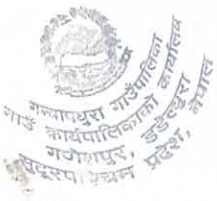 गन्यापधुरा गाउँपालिका
गाउँ कार्यपालिकाको कार्यालय
गणेशपुर, डडेल्धुरा
सुदूरपश्चिम प्रदेश, नेपाल